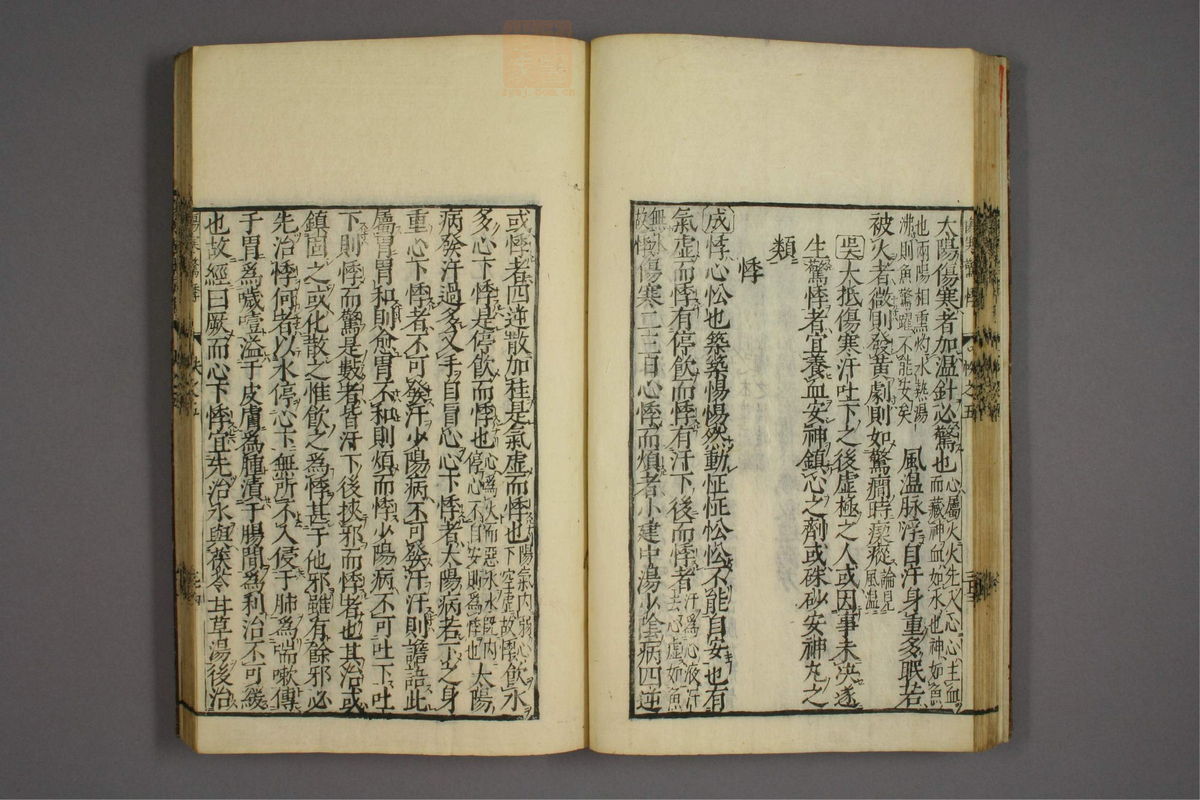 太陽傷寒者加温針必驚也心屬火火先入心心主血
而藏神血如水也神如魚
也兩陽相熏灼水熱湯
沸則魚驚躍不能安矣
風温脉浮自汗身重多眠若
被火者微則發黄劇則如驚癇時瘈瘲論見
風温
吴大抵傷寒汗吐下之後虚極之人或因事未决遂
生驚悸者宜養血安神鎮心之劑或硃砂安神丸之
類
悸
成悸心忪也築築惕惕然動怔怔忪忪不能自安也有
氣虚而悸有停飲而悸有汗下後而悸者汗爲心液汗
去心虚如魚
無水
故悸
傷寒二三日心悸而煩者小建中湯少陰病四逆
或悸者四逆散加桂是氣虚而悸也陽氣内弱心
下空虚故悸
飲水
多心下悸是停飲而悸也心爲火而惡水水既内
停心不自安則爲悸也
太陽
病發汗過多叉手自冒心心下悸者太陽病若下之身
重心下悸者不可發汗少陽病不可發汗汗則譫語此
屬胃胃和則愈胃不和則煩而悸少陽病不可吐下吐
下則悸而驚是數者皆汗下後挾邪而悸者也其治或
鎮固之或化散之惟飲之爲悸甚于他邪雖有餘邪必
先治悸何者以水停心下無所不入侵于肺爲喘嗽傳
于胃爲噦噎溢于皮膚爲腫漬于腸間爲利治不可緩
也故經曰厥而心下悸宜先治水與茯苓甘草湯後治